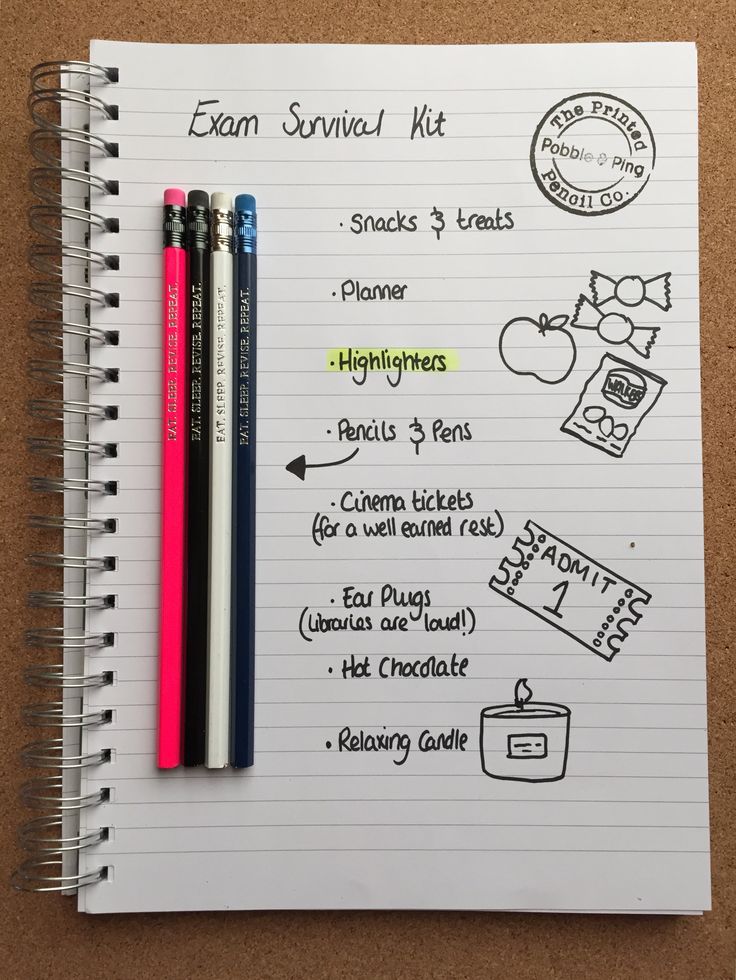 Exam Survival Kit
The Printed
Pobble & Ping
Pencil Co.
· Snacks & treats
· Planner
· Highlighters
· Pencils & Pens
· Cinema tickets
(for a well earned rest)
· Ear Plugs
(libraries are loud!)
· Hot Chocolate
· Relaxing Candle
ADMIT
1
EAT. SLEEP. REVISE. REPEAT.
EAT. SLEEP. REVISE. REPEAT.
EAT. SLEEP. REVISE. REPEAT.
EAT. SLEEP. REVISE. REPEAT.